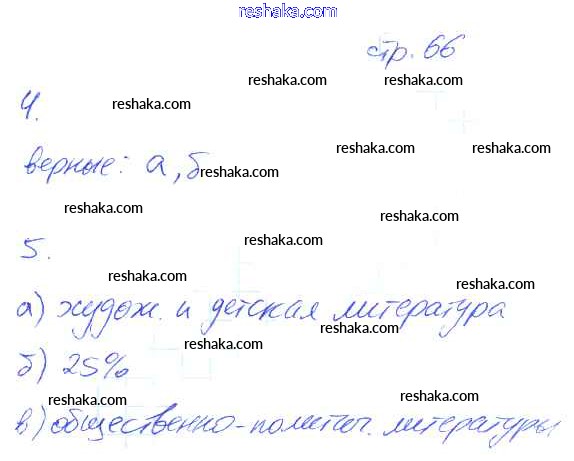 reshaka.com
стр. 66
reshaka.com reshaka.com
4.
reshaka.com
reshaka.com reshaka.com
верные: а, б
reshaka.com
reshaka.com reshaka.com
5.
reshaka.com
reshaka.com reshaka.com
а) худож. и детская литература
reshaka.com
reshaka.com reshaka.com
б) 25%
reshaka.com reshaka.com
в) общественно-политич. литературы
reshaka.com reshaka.com